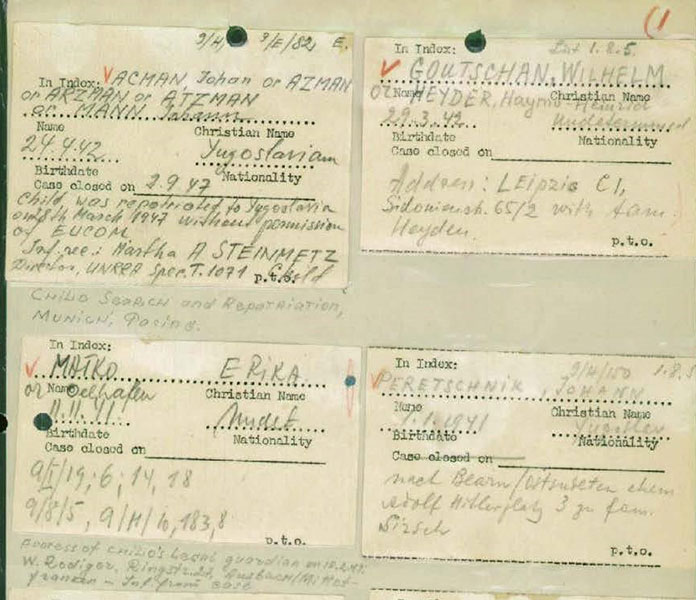 (1
9/4/ 9/E/82, E.
In Index: ACMAN, Johan or AZMAN
or ARZMAN or ATZMAN
or MANN Johann
Name Christian Name
24.4.42 Yugoslavian
Birthdate Nationality
Case closed on 2.9.47
Child was repatriated to Yugoslavia
on 8th March 1947 without permission
of EUCOM.
Inf. rec.: Martha A STEINMETZ
Director, UNRRA Spec. T. 1071 p.t.o. Child
CHILD SEARCH and Repatriation,
MUNICH, Pasing.
1.8.5
In Index:
GOUTSCHAN, WILHELM
or HEYDER, Haymo Heinrich
Name Christian Name
29.3.42 Undetermined
Birthdate Nationality
Case closed on
Address: LEipzig C1,
Sidonienstr. 65/2 with fam.
Heyden.
p.t.o.
In Index:
MATKO ERIKA
or Oelhafen
Name Christian Name
11.11.41. Undet
Birthdate Nationality
Case closed on
9/I/19; 6; 14, 18
9/8/5, 9/H/10, 183,8
p.t.o.
Address of child's legal guardian on
W. Rödiger, Ringstr. Ansbach/Mittel-
franken - Inf. from case
In Index: 9/H/150 1.8.5
PERETSCHNIK, JOHANN
Name Christian Name
1941 Yugoslav
Birthdate Nationality
Case closed on
nach Bearn/Ostsudeten ehem
Adolf Hitlerplatz 3 zu fam.
Sirsch
p.t.o.